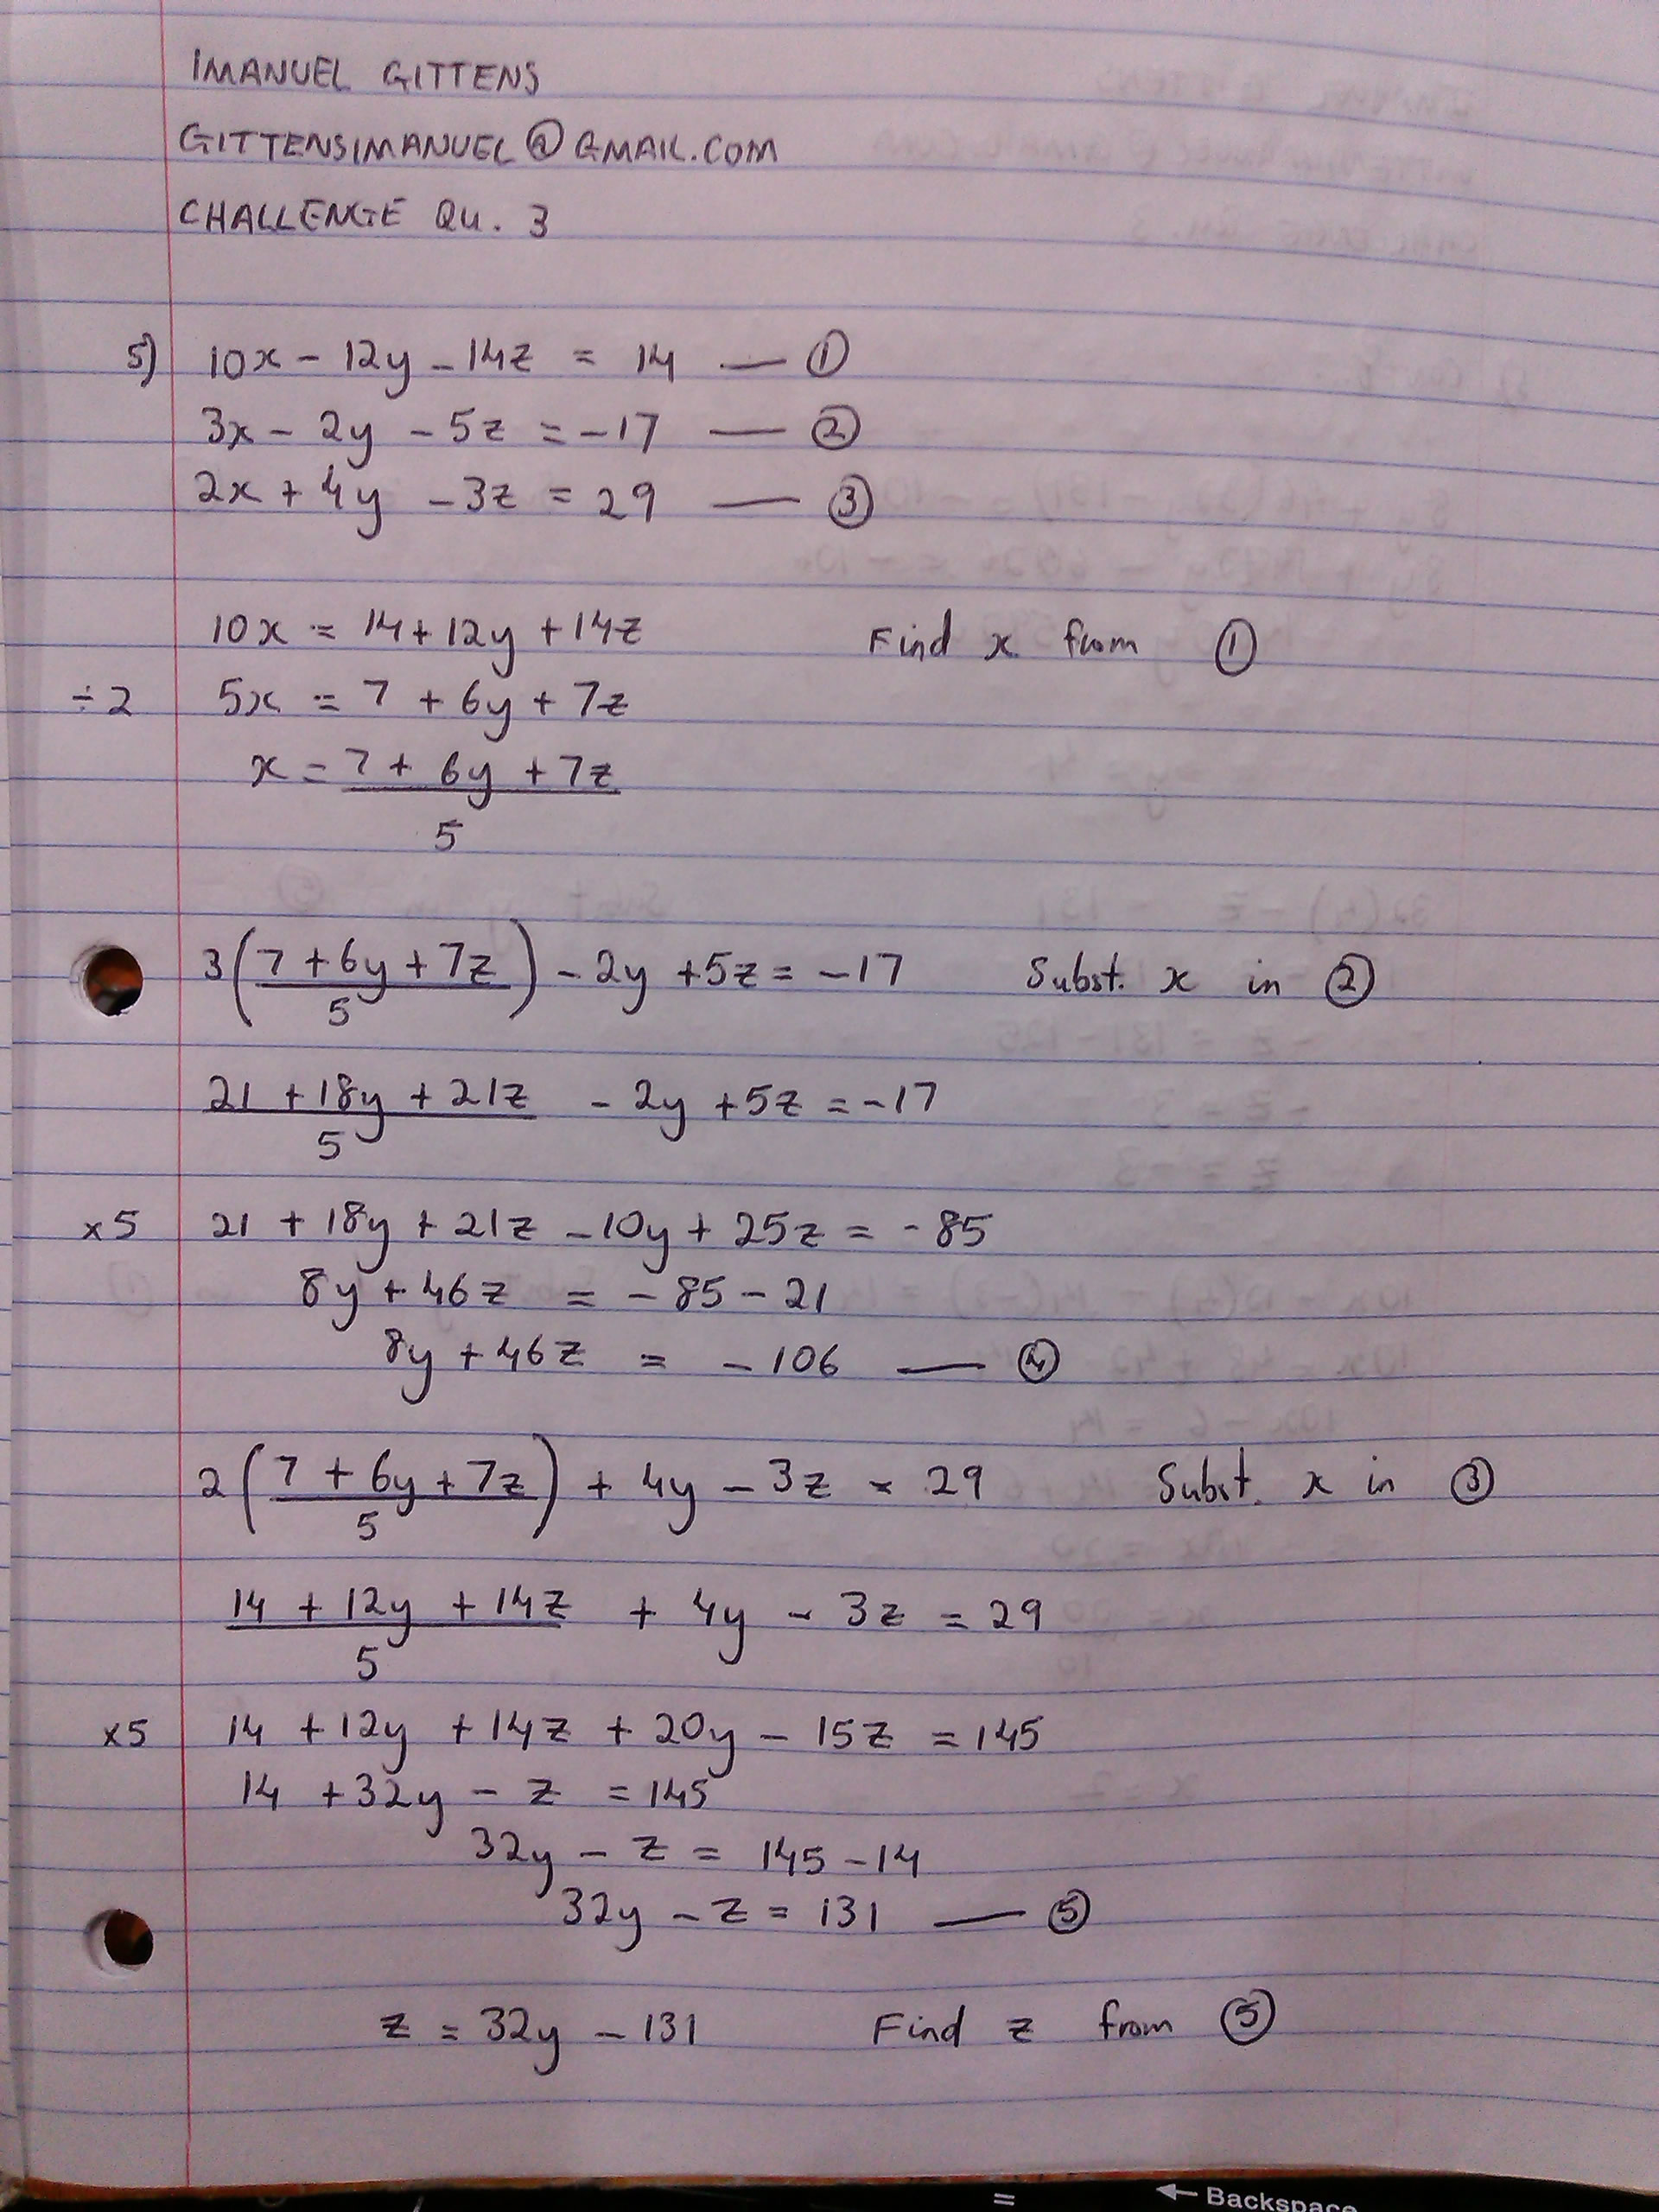 IMANUEL GITTENS
GITTENSIMANUEL@GMAIL.COM
CHALLENGE QU. 3
5) 10x - 12y - 14z = 14 — ①
3x - 2y - 5z = -17 — ②
2x + 4y - 3z = 29 — ③
10x = 14 + 12y + 14z Find x from ①
÷2 5x = 7 + 6y + 7z
x = 7 + 6y + 7z
5
3(7 + 6y + 7z) - 2y + 5z = -17 Subst. x in ②
5
21 + 18y + 21z - 2y + 5z = -17
5
x5 21 + 18y + 21z - 10y + 25z = -85
8y + 46z = -85 - 21
8y + 46z = -106 — ④
2(7 + 6y + 7z) + 4y - 3z = 29 Subst. x in ③
5
14 + 12y + 14z + 4y - 3z = 29
5
x5 14 + 12y + 14z + 20y - 15z = 145
14 + 32y - z = 145
32y - z = 145 - 14
32y - z = 131 — ⑤
z = 32y - 131 Find z from ⑤
= ← Backspace